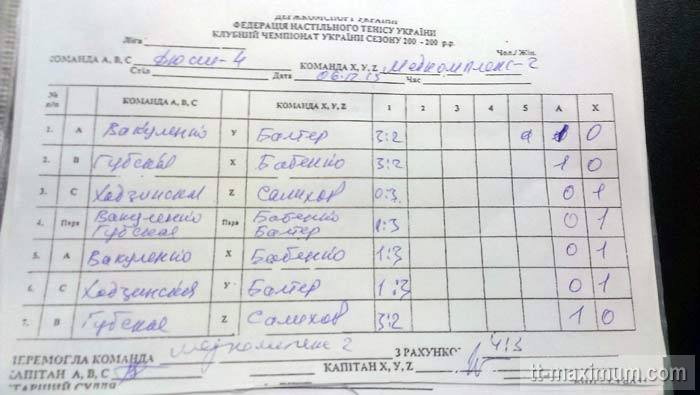 ДЕРЖКОМСПОРТ УКРАЇНИ
ФЕДЕРАЦІЯ НАСТІЛЬНОГО ТЕНІСУ УКРАЇНИ
КЛУБНИЙ ЧЕМПІОНАТ УКРАЇНИ СЕЗОНУ 200 - 200 р.р.
Ліга Чол./Жін.
КОМАНДА А, В, С Дюсш-4 КОМАНДА X, Y, Z Медкомплекс-2
Стіл Дата 06.12.15 Час
№ п/п КОМАНДА А, В, С КОМАНДА X, Y, Z 1 2 3 4 5 А X
1. А Вакуленко У Балтер 3:2 1 0
2. В Губская X Бабенко 3:2 1 0
3. С Ходзинская Z Салихов 0:3 0 1
4. Пара Вакуленко Губская Пара Бабенко Балтер 1:3 0 1
5. А Вакуленко X Бабенко 1:3 0 1
6. С Ходзинская У Балтер 1:3 0 1
7. В Губская Z Салихов 3:2 1 0
ПЕРЕМОГЛА КОМАНДА Медкомплекс 2 З РАХУНКОМ 4:3
КАПІТАН А, В, С КАПІТАН X, Y, Z
СТАРШИЙ СУДДЯ
tt-maximum.com